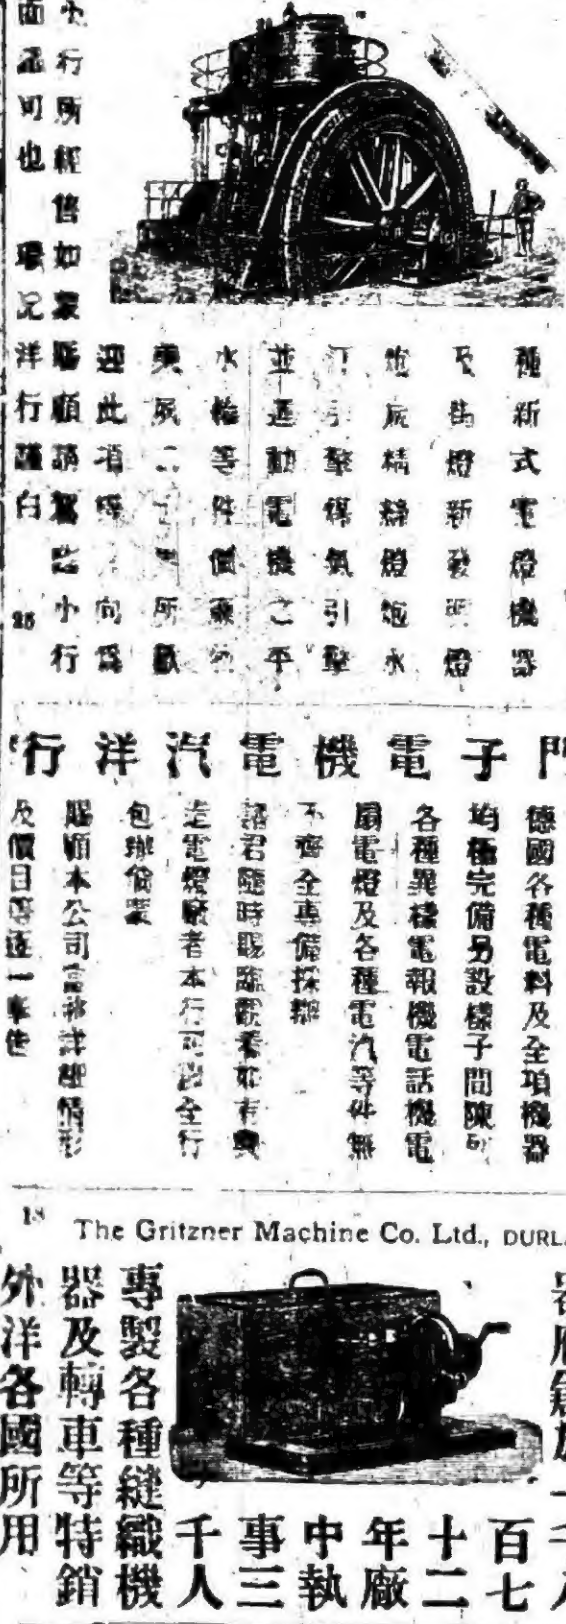 種新式電燈機器
及街燈新發明燈
炮炭精絲燈炮水
汀引擎煤氣引擎
並運動電機之平
水輪等件價廉物
所歡
迎此項 向爲
小行所經售如蒙賜顧請駕臨小行
面訊可也 環況洋行謹白
25
門子電機電汽洋行
德國各種電料及全項機器
均極完備另設樣子間陳列
各種異樣電報機電話機電
扇電燈及各種電汽等件無
不齊全專備採辦
諸君隨時賜臨觀看如有興
造電燈廠者本行可設全行
包辦倘蒙
賜顧本公司當將詳細情形
及價目等逐一奉告
18
The Gritzner Machine Co. Ltd., DURL
器廠創於一千八
百七
十二
年廠
中執
事三
千人
專製各種縫織機
器及轉車等特銷
外洋各國所用